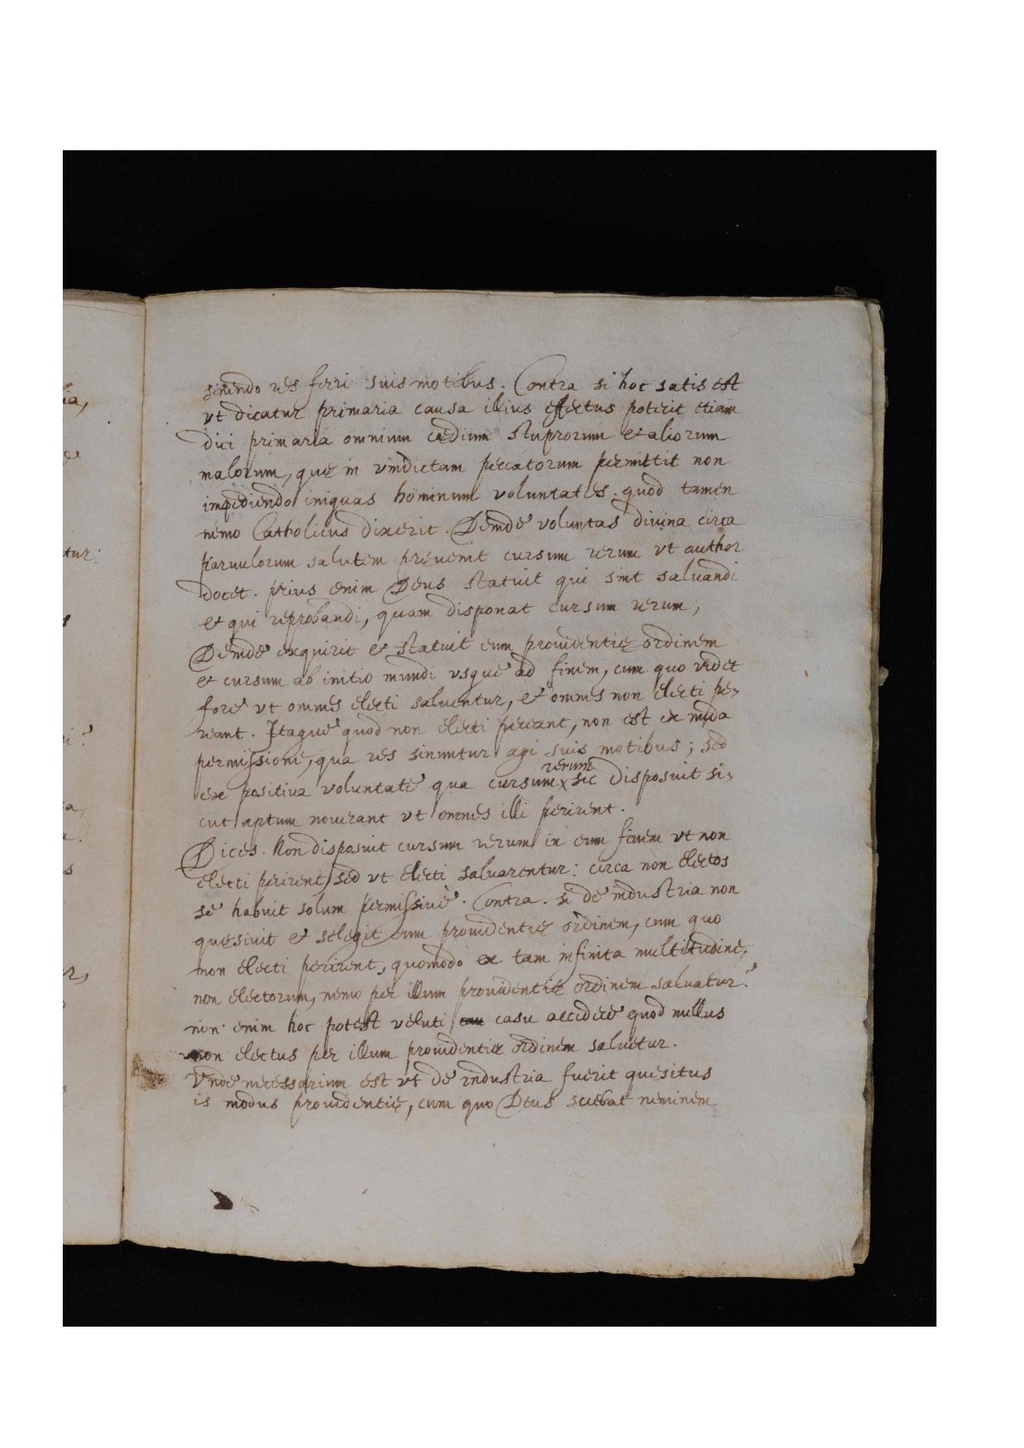 sinendo res ferri suis motibus. Contra si hoc satis est
vt dicatur primaria causa illius effectus poterit etiam
dici primaria omnium cædium stuprorum et aliorum
malorum, quę in vindictam peccatorum permittit non
impediendo iniquas hominum voluntates. quod tamen
nemo Catholicus dixerit. Deinde voluntas diuina circa
paruulorum salutem pręuenit cursum rerum vt author
docet. prius enim Deus statuit qui sint saluandi
et qui reprobandi, quam disponat cursum rerum;
Deinde exquirit et statuit eum prouidentię ordinem
et cursum ab initio mundi vsque ad finem, cum quo videt
fore vt omnes electi saluentur, et omnes non electi pe-
reant. Itaque quod non electi pereant, non est ex nuda
permissione, qua res sinuntur agi suis motibus; sed
rerum
ex positiua voluntate qua cursum x sic disposuit si-
cut aptum nouerant vt omnes illi perirent.
Dices. Non disposuit cursum rerum in eum finem vt non
electi perirent, sed vt electi saluarentur: circa non electos
se habuit solum permissiuè. Contra. si de industria non
quęsiuit et selegit eum prouidentię ordinem, cum quo
non electi perirent, quomodo ex tam infinita multitudine,
non electorum, nemo per illum prouidentię ordinem saluatur?
non enim hoc potest veluti casu accidere quod nullus
non electus per illum prouidentię ordinem saluetur.
Vnde necessarium est vt de industria fuerit quęsitus
is modus prouidentię, cum quo Deus sciebat neminem